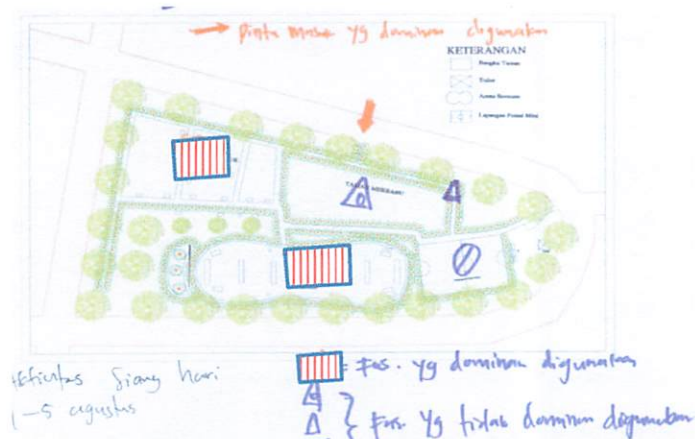 pintu masuk yg dominan digunakan
KETERANGAN
Bangku Taman
Toilet
Arena Bermain
Lapangan Futsal Mini
TAMAN MERBABU
Aktifitas Siang hari
1-5 agustus
= Fas. yg dominan digunakan
Fas. yg tidak dominan digunakan